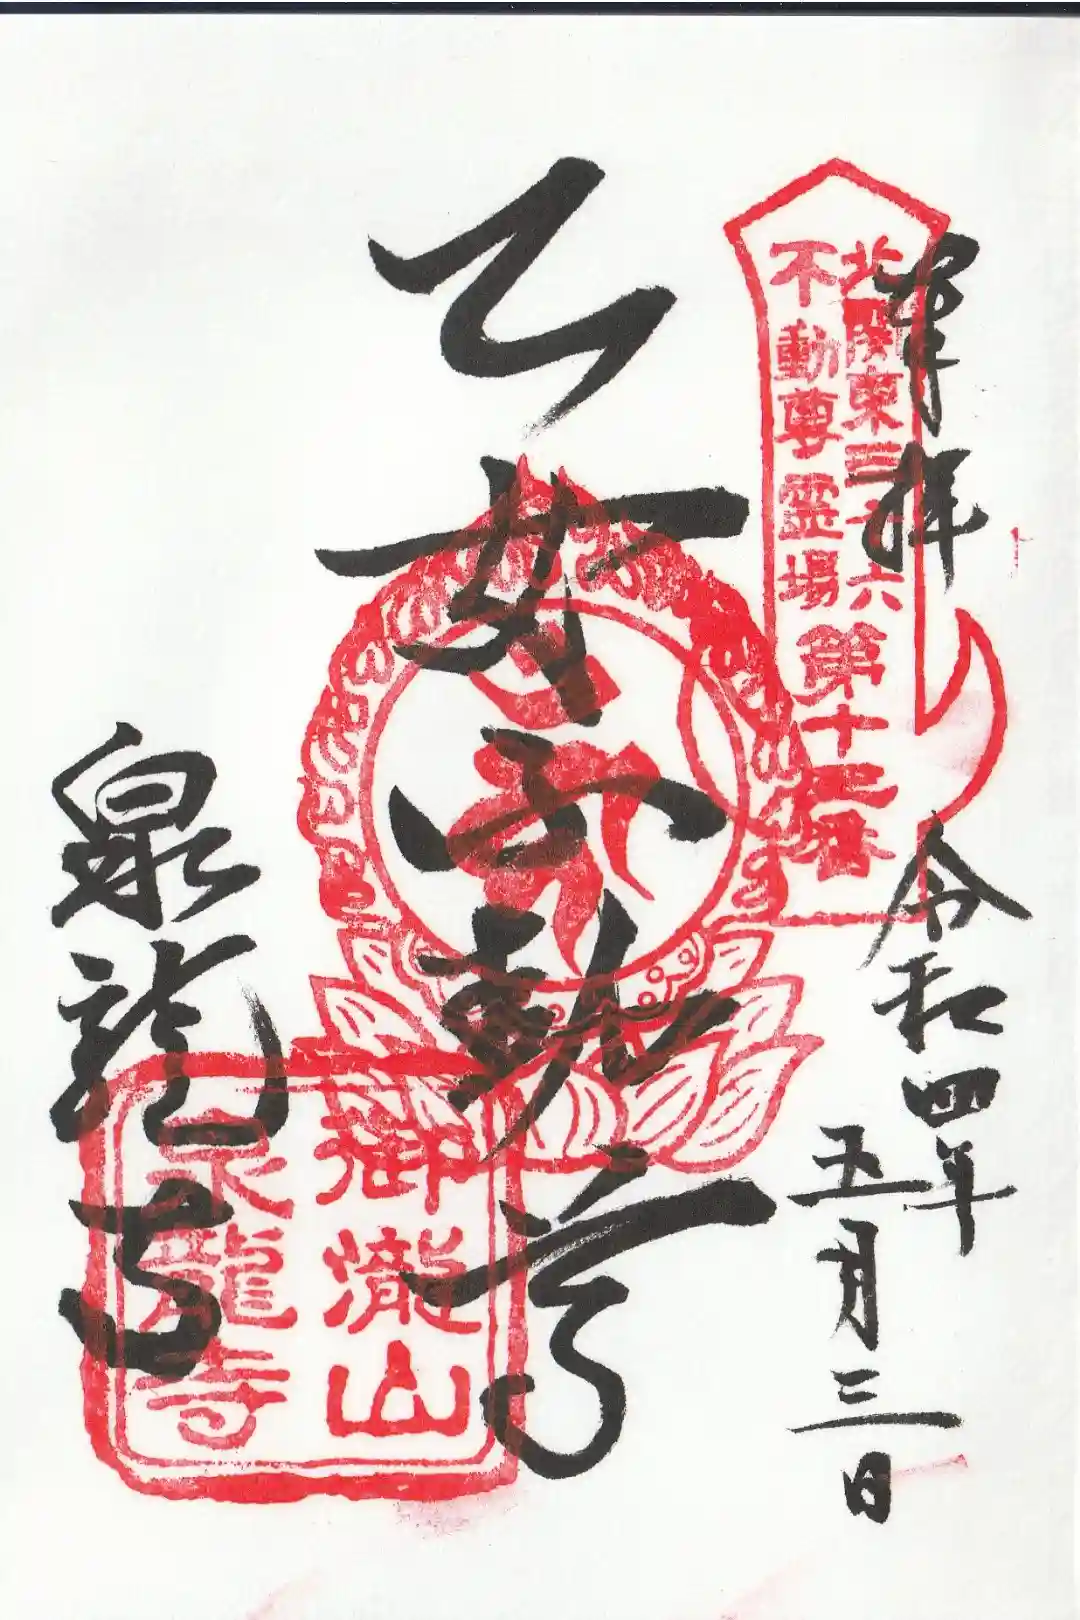 奉拝
令和四年
五月三日
北関東三十六
不動尊霊場
乙女不動尊
泉龍寺
御瀧山
泉龍寺